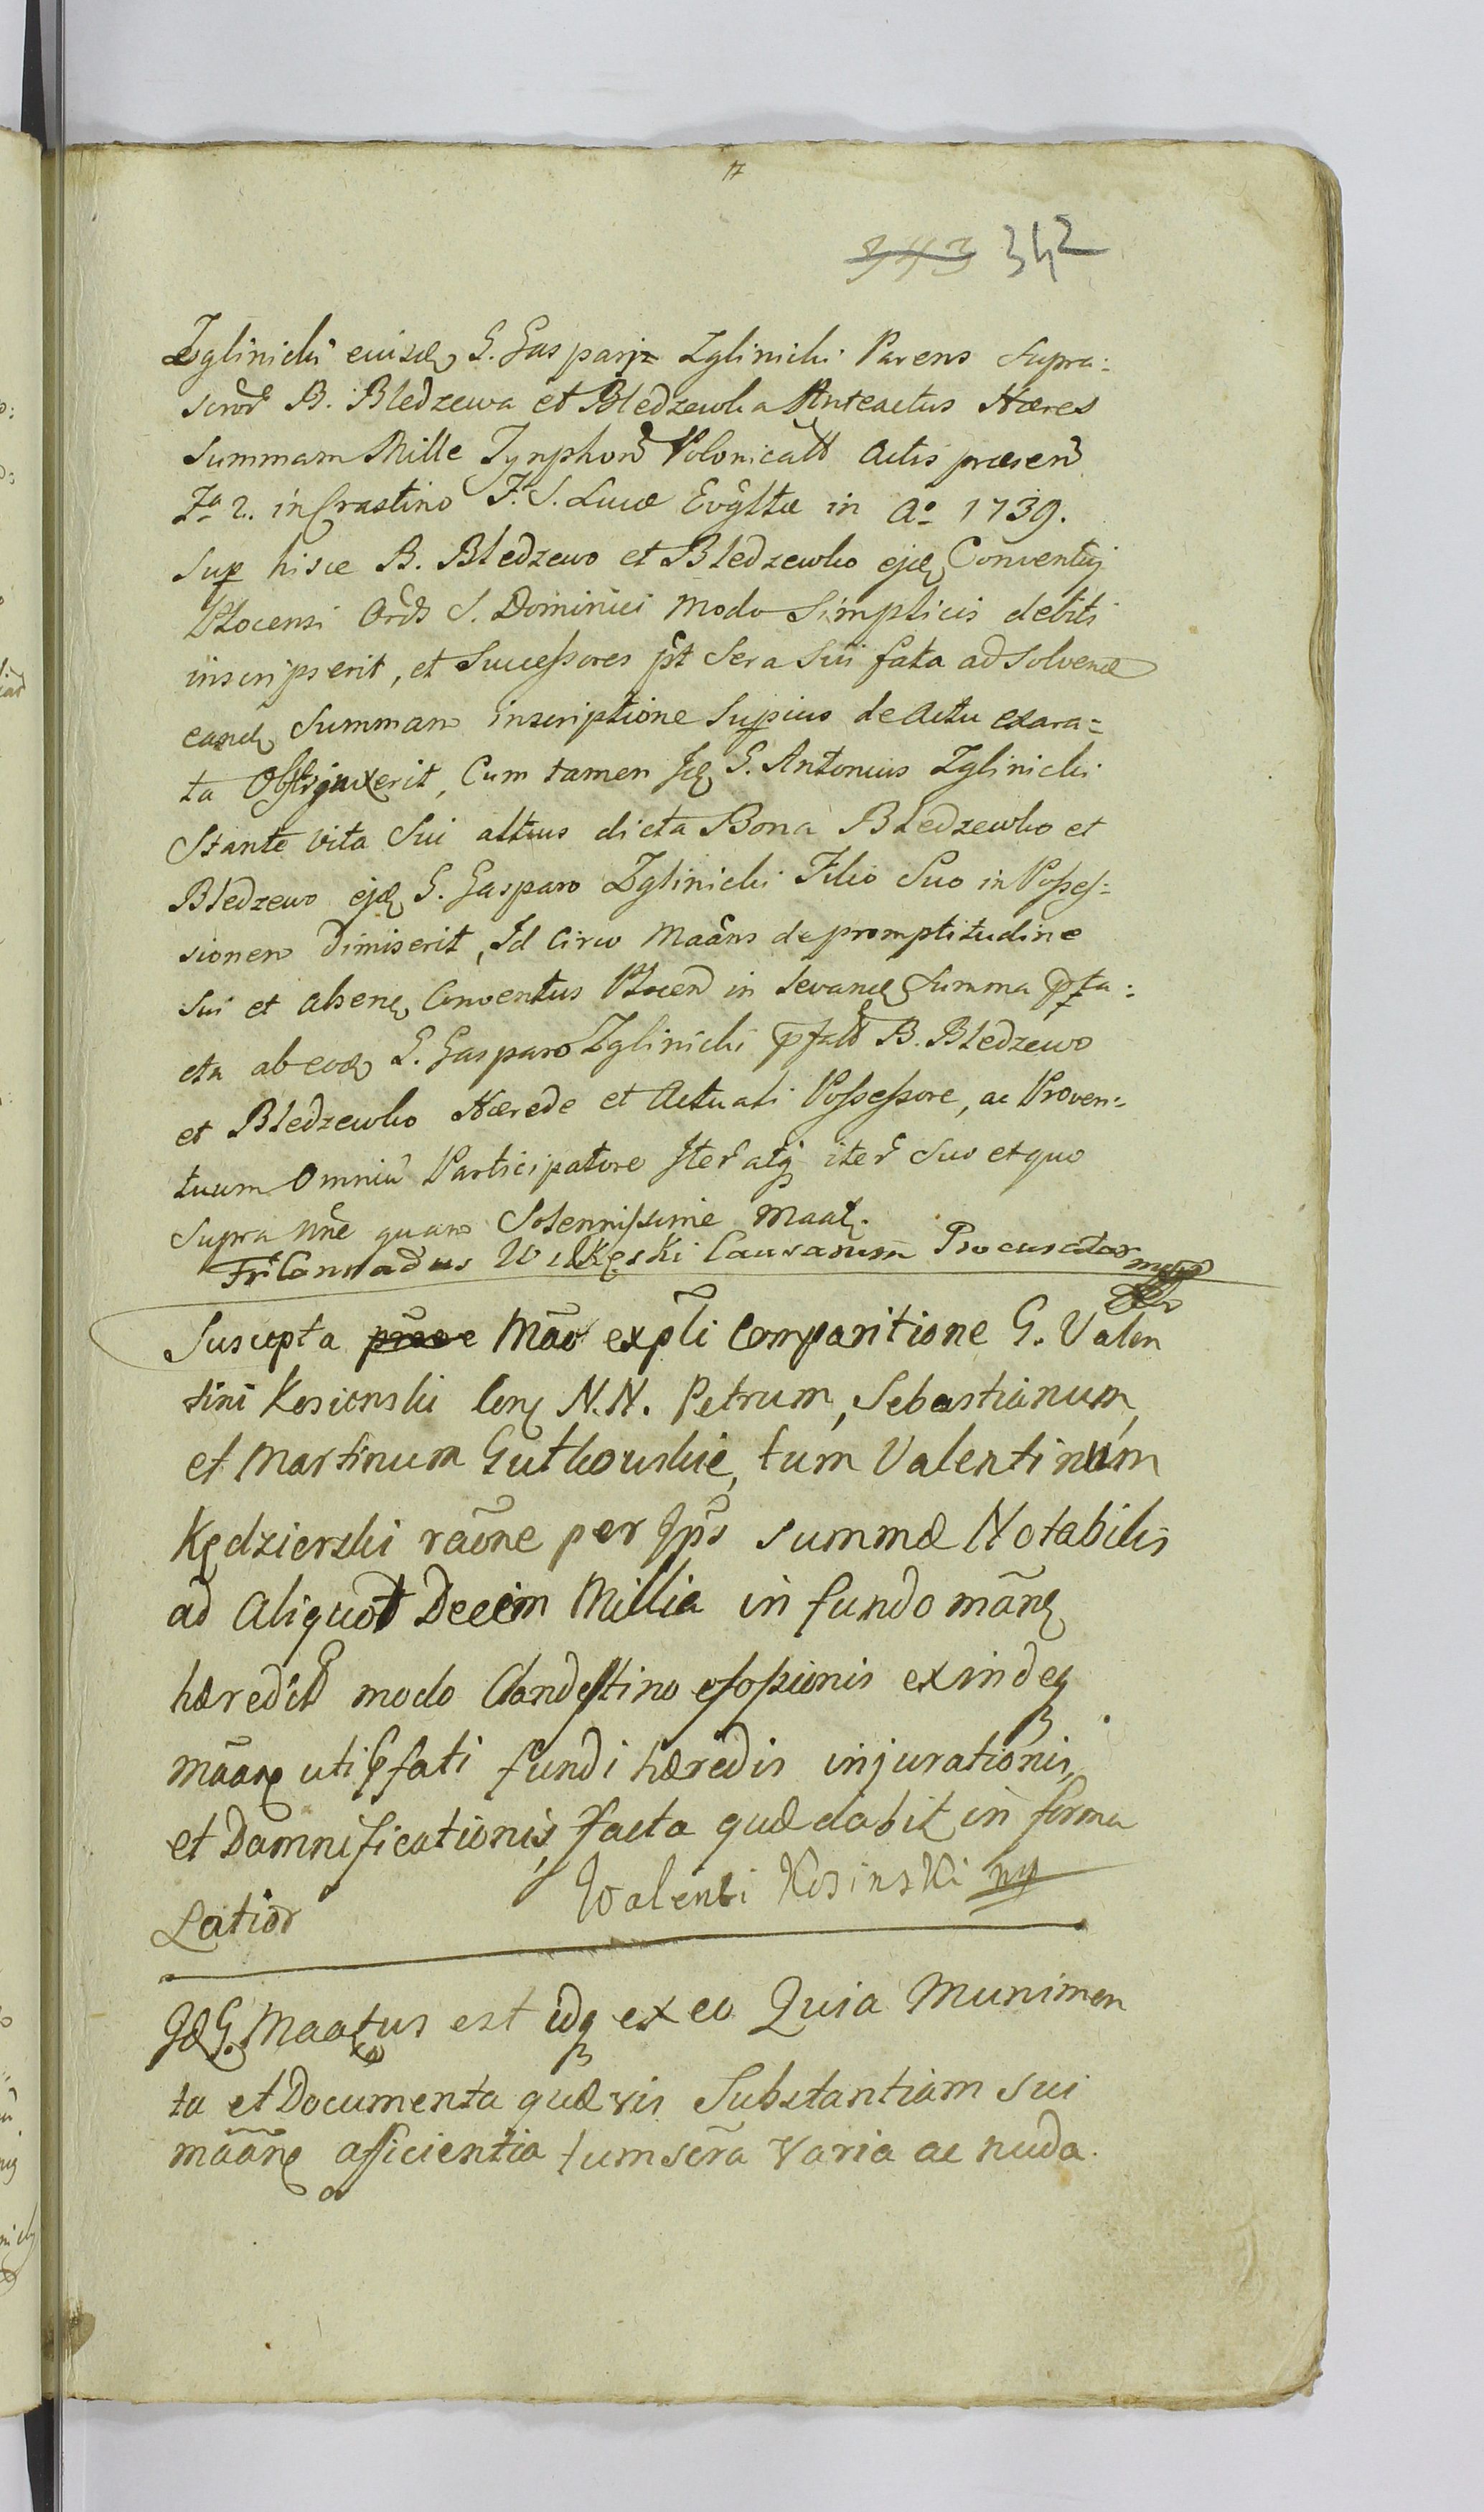 17
343 342
Zglinicki eiusd G. Gaspari Zglinicki Parens supra:
scror B. Bledzewa et Bledzewka Anteactus Hæres
summam Mille Tynphon Polonicall Actis præsen
Fa 2. in Crastino F. S. Lucæ Evgltæ in Ao 1739.
sup hisce B. Bledzewo et Bledzewko ejd Conventuj
Plocensi Ords S. Dominici modo simplicis debiti
inscripserit, et Successores pt sera sui fata ad solvend
eand summam inscriptione superius de Actu exara=
ta Obstrinxerit, Cum tamen Jd G. Antonius Zglinicki
Stante vita sui altius dicta Bona Bledzewko et
Bledzewo ejd G. Gasparo Zglinicki Filio suo in Posses=
sionem dimiserit, Id Circo Maans de promptitudine
sui et alsend Conventus Plocen in levand summa pfa:
eta ab eod G. Gasparo Zglinicki pfall B. Bledzewo
et Bledzewko Hærede et Actuali Possessore, ac Proven=
tuum Omniu Participatore Iter atq iter suo et quo
supra nne quam Solennissime Maat.
Fr Conradus Wilkęski Causarum Procurator mp
Suscepta præve Mao expli Comparitione G. Valen
tini Kosienski Con N.N. Petrum, Sebastianum,
et Martinum Gutkowskie, tum Valentinum
Kędzierski raone per Jps summæ Notabilis
ad Aliquot Decem Millia in fundo man
hæredit modo Clandestino effossionis exindeq
maan uti pfati fundi hæredis injurationis,
et Damnificationis, facta quæ dabit in forma
Latior Walenti Kosinski mp
Jd G. Maatus est idq ex eo Quia Munimen
ta et Documenta quævis Substantiam sui
maan afficientia tum scra varia ac nuda.